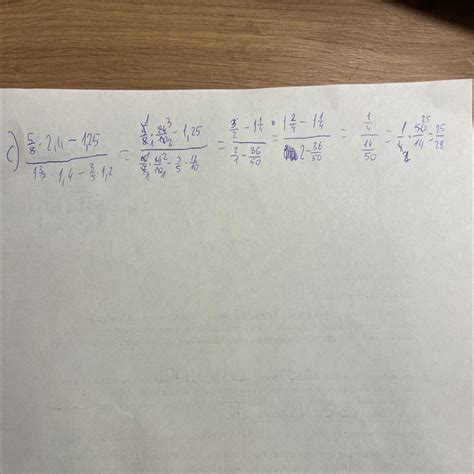 c) \frac{\frac{5}{8} \cdot 2,4 - 1,25}{1\frac{3}{7} \cdot 1,4 - \frac{3}{5} \cdot 1,2} = \frac{\frac{5}{8} \cdot \frac{24}{10} - 1,25}{\frac{10}{7} \cdot \frac{14}{10} - \frac{3}{5} \cdot \frac{12}{10}} = \frac{\frac{3}{2} - 1\frac{1}{4}}{\frac{2}{1} - \frac{36}{50}} = \frac{1\frac{2}{4} - 1\frac{1}{4}}{2 - \frac{36}{50}} = \frac{\frac{1}{4}}{\frac{14}{50}} = \frac{1}{4} \cdot \frac{50}{14} = \frac{25}{28}